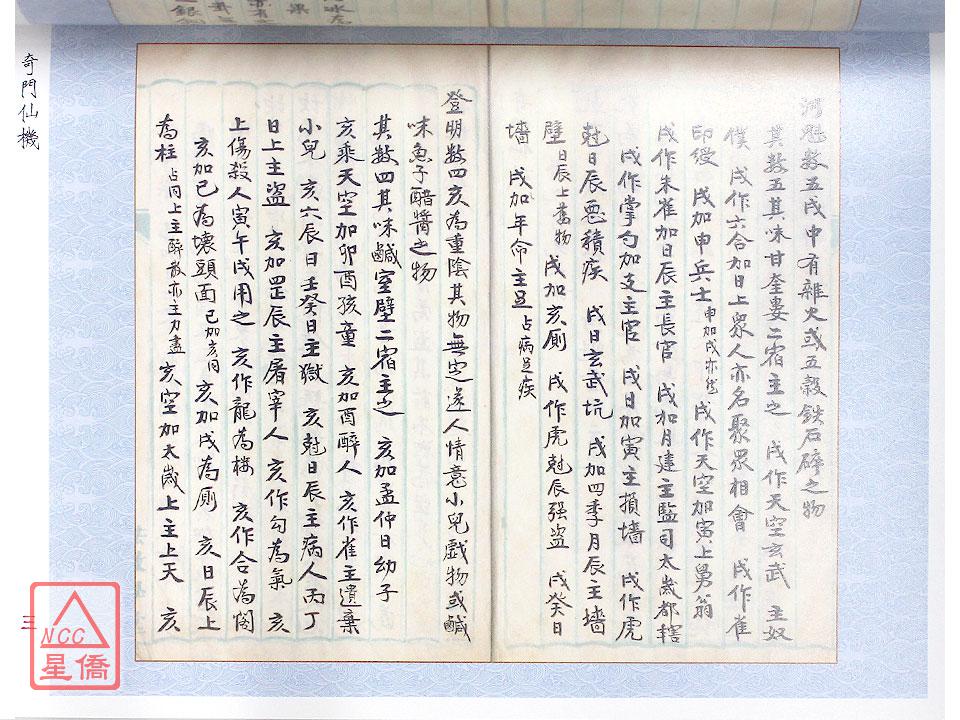 河魁数五戌中有雜火或五穀鉄石碎之物
其数五其味甘奎婁二宿主之　戌作天空玄武　主奴
僕　戌作六合加日上衆人亦名聚眾相會　戌作雀
印绶　戌加申兵士申加戌亦然　戌作天空加寅上舅翁
戌作朱雀加日辰主長官　戌加月建主監司太歲都轄
戌作掌勾加支主官　戌日加寅主損墙　戌作虎
尅日辰悪積疾　戌日玄武坑　戌加四季月辰主墻
壁日辰上舊物　戌加亥厠　戌作虎尅辰强盜　戌癸日
墻　戌加年命主足占病足疾
登明数四亥為重陰其物無定遂人情意小兒戲物或鹹
味魚子醋醬之物
其数四其味鹹室壁二宿主之　亥加孟仲日幼子
亥乘天空加卯酉孩童　亥加酉醉人　亥作雀主遺棄
小兒　亥六辰日壬癸日主獄　亥尅日辰主病人丙丁
日上主盜　亥加罡辰主屠宰人　亥作勾為氣　亥
上傷殺人寅午戌用之　亥作龍為楼　亥作合為閣
亥加巳為壞頭面巳加亥同　亥加戌為厠　亥日辰上
為柱占同上主醉散亦主力盡　亥空加太歲上主上天　亥
奇門仙機
三
NCC
星僑